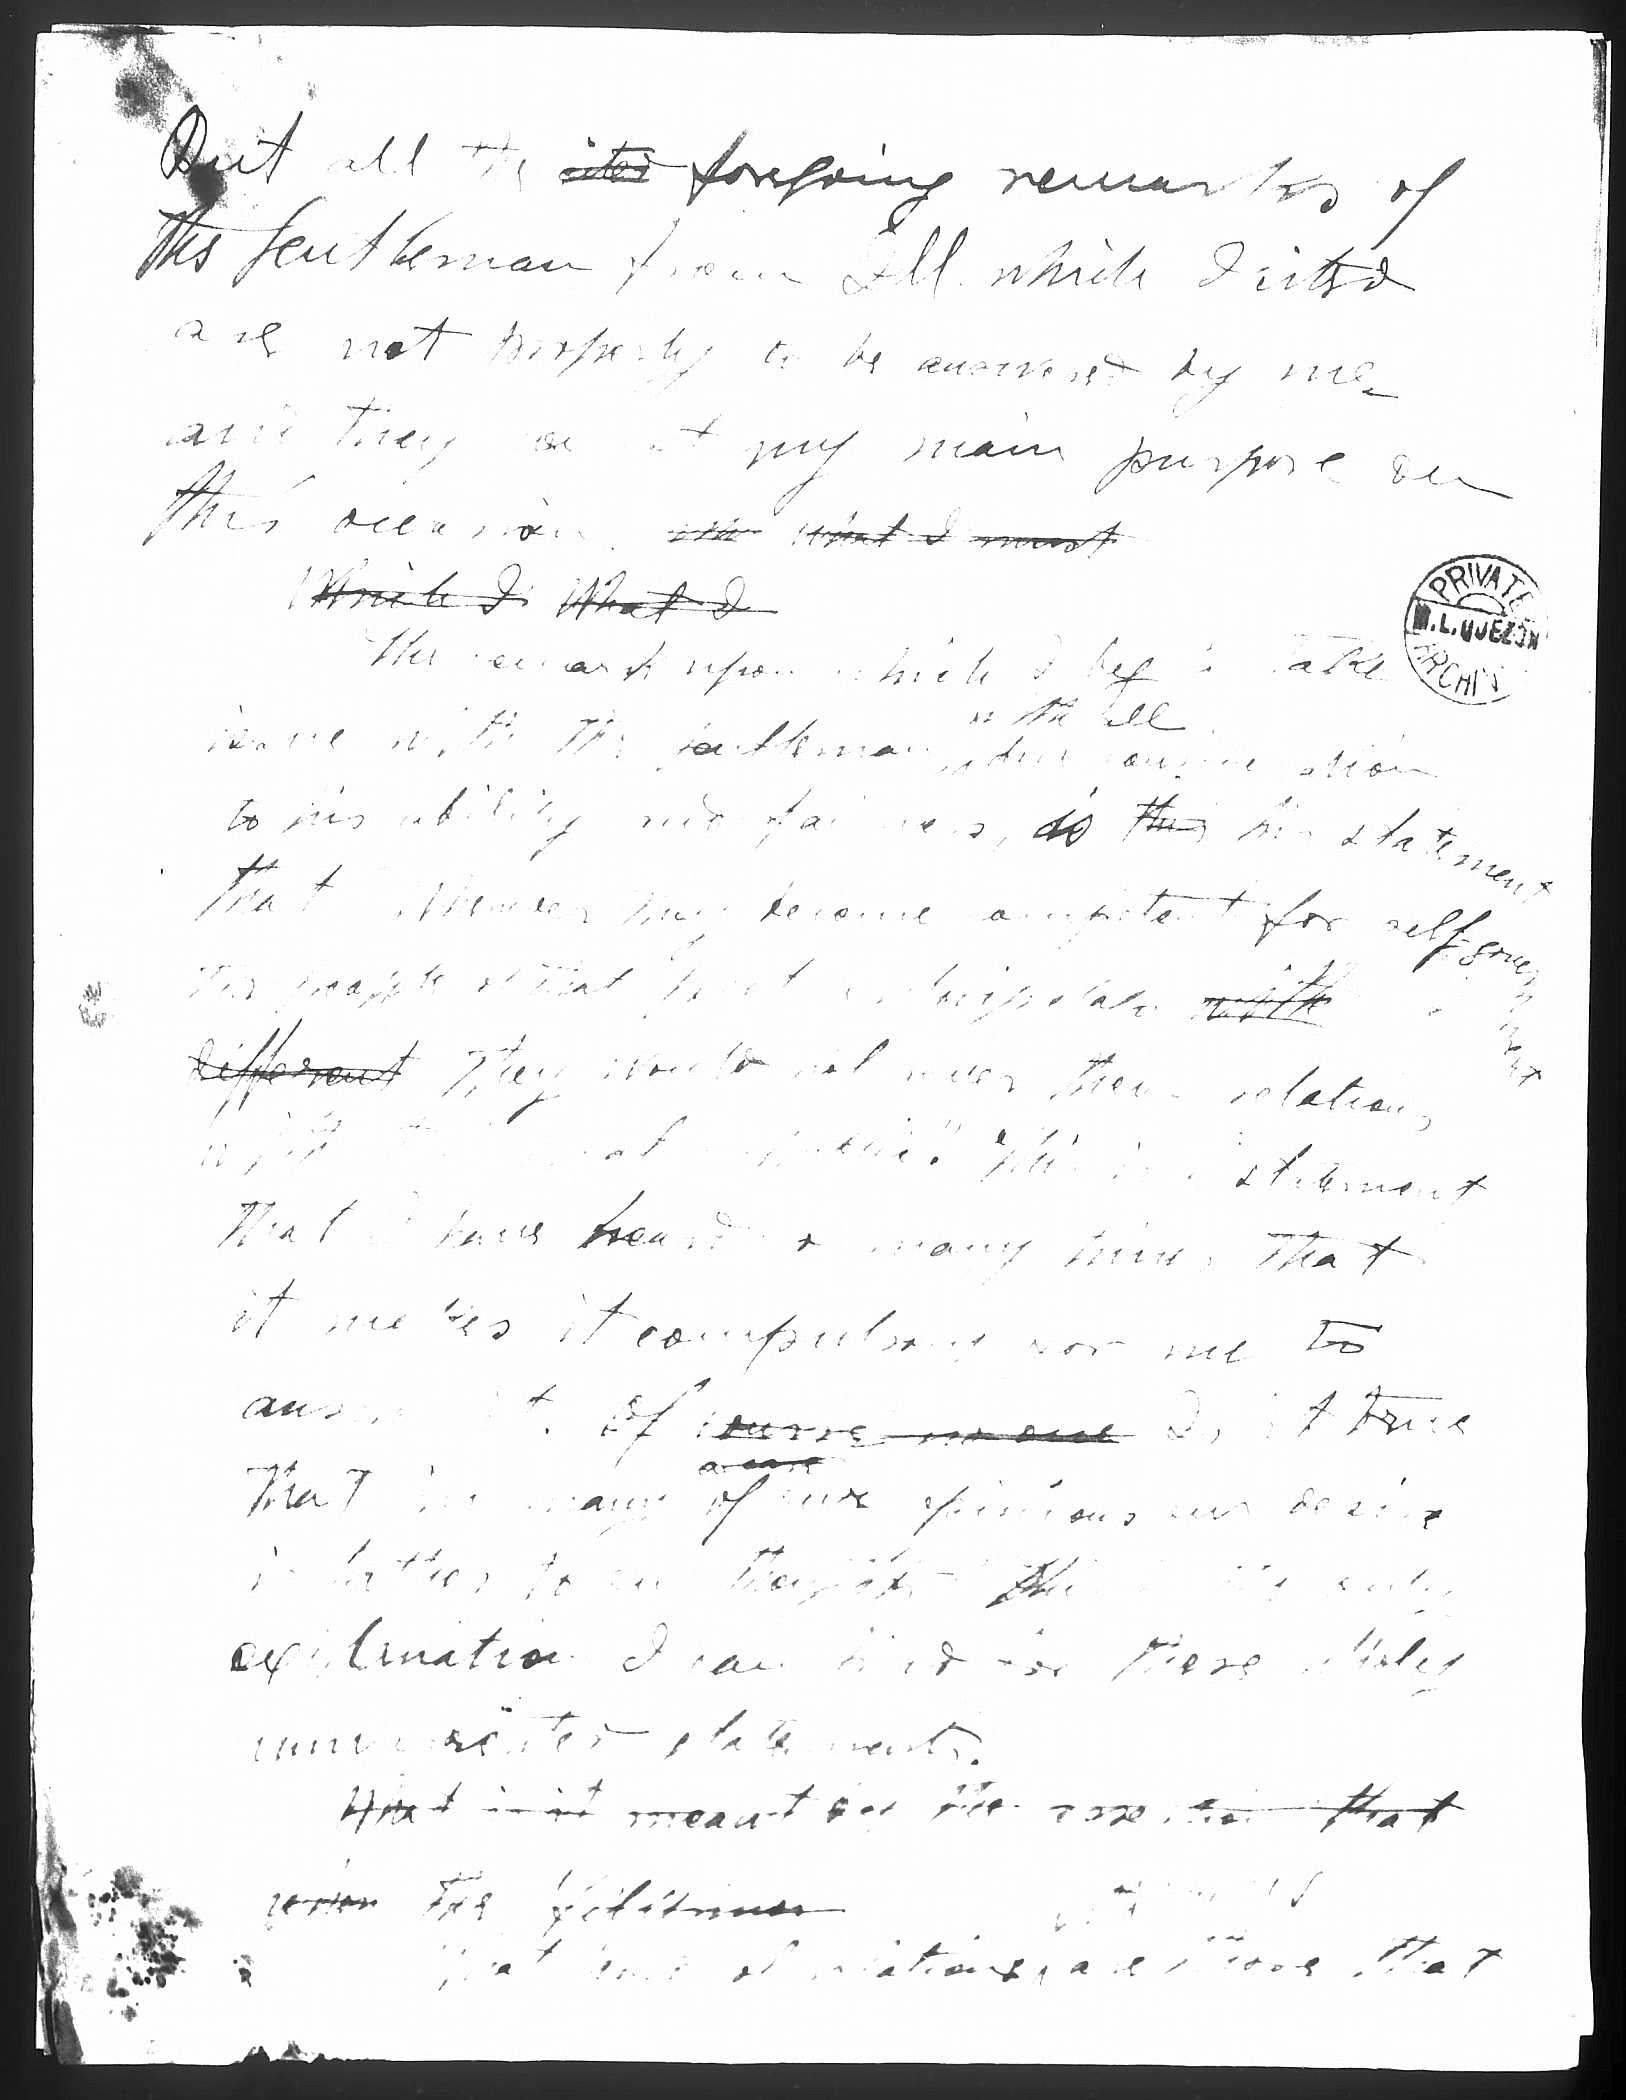 But all the cited foregoing remarks of
the Gentleman from Ill. which I cited
are not properly to be answered by me
and they are not my main purpose on
this occasion. what I must
Which I What I
The remark upon which I beg to take
issue with the Gentleman, with all due consideration
to his ability and fairness, is this his statement
that whenever they become competent for self-government
the people of that great archipelago with
different They would not sever their relations
with the This is a statement
that I have heard so many times that
it makes it compulsory for me to
answer it. Of course no one Is it true
that in many of our opinions our desire
is father to our thoughts. This is the only
explanation I can find for these wholly
unwarranted statements.
What is it meant by the assertion that
when the Filipinos
What kind of relations are those that
PRIVATE
M.L. QUEZON
ARCHIVES